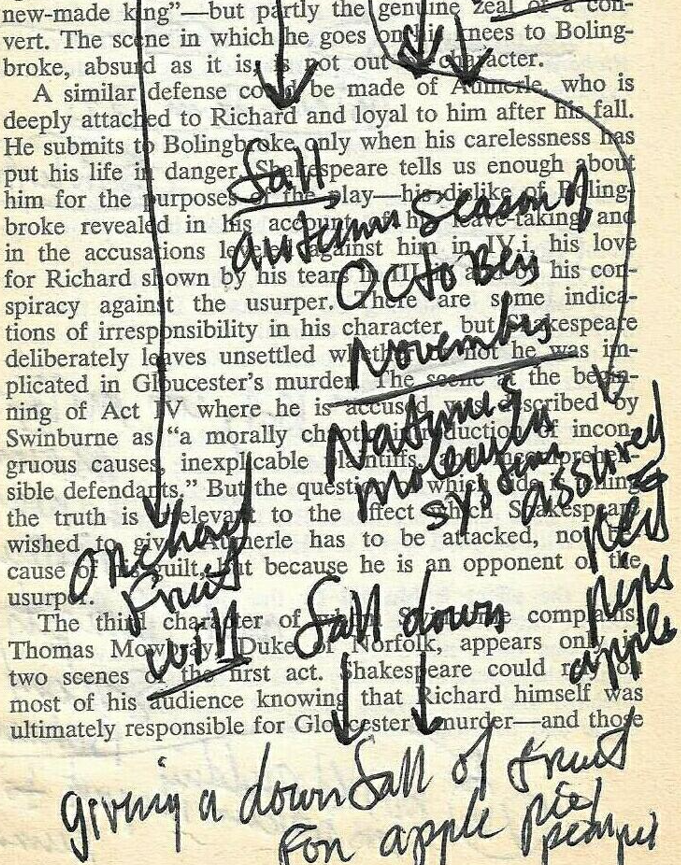 new-made king"—but partly the genuine zeal of a con-
vert. The scene in which he goes on his knees to Boling-
broke, absurd as it is, is not out of character.
A similar defense could be made of Aumerle, who is
deeply attached to Richard and loyal to him after his fall.
He submits to Bolingbroke only when his carelessness has
put his life in danger. Shakespeare tells us enough about
him for the purposes of the play—his dislike of Boling-
broke revealed in his account of his leave-taking and
in the accusations leveled against him in IV.i, his love
for Richard shown by his tears in III.iii and by his con-
spiracy against the usurper. There are some indica-
tions of irresponsibility in his character, but Shakespeare
deliberately leaves unsettled whether or not he was im-
plicated in Gloucester's murder. The scene at the begin-
ning of Act IV where he is accused was described by
Swinburne as "a morally chaotic introduction of incon-
gruous causes, inexplicable plaintiffs, and incomprehen-
sible defendants." But the question of which side is telling
the truth is irrelevant to the effect which Shakespeare
wished to give. Aumerle has to be attacked, not be-
cause of his guilt, but because he is an opponent of the
usurper.
The third character of whom Swinburne complains,
Thomas Mowbray, Duke of Norfolk, appears only in
two scenes of the first act. Shakespeare could rely on
most of his audience knowing that Richard himself was
ultimately responsible for Gloucester's murder—and those
fall
autumn season of
October
November
Nature's
molecular
system
assured
red
rips
apple
orchard
fruit
will
fall down
giving a downfall of fruit
for apple pie